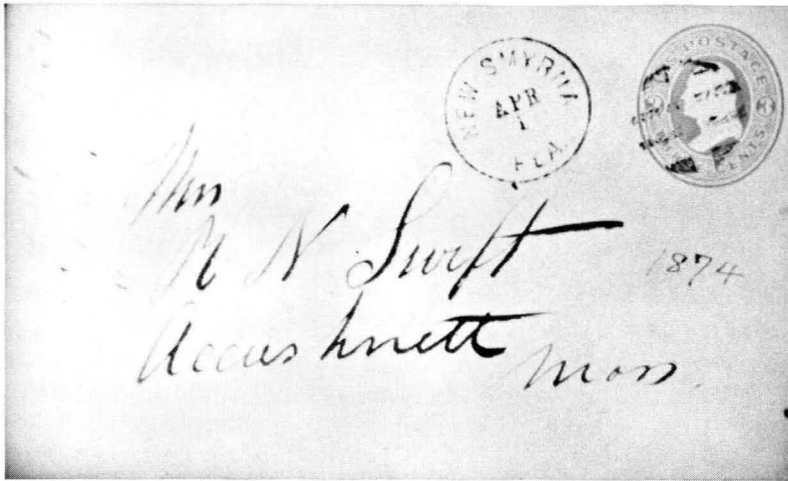 NEW SMYRNA
APR
1
FLA.
POSTAGE
3 3
CENTS
Mrs
R N Swift
Accushnett
Mass.
1874